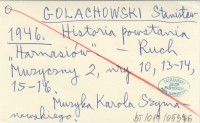 GOLACHOWSKI Stanisław
1946. Historia powstania
"Harnasiów" – Ruch
Muzyczny 2, nry 10, 13-14,
15-16.
Muzyka Karola Szyma-
nowskiego.